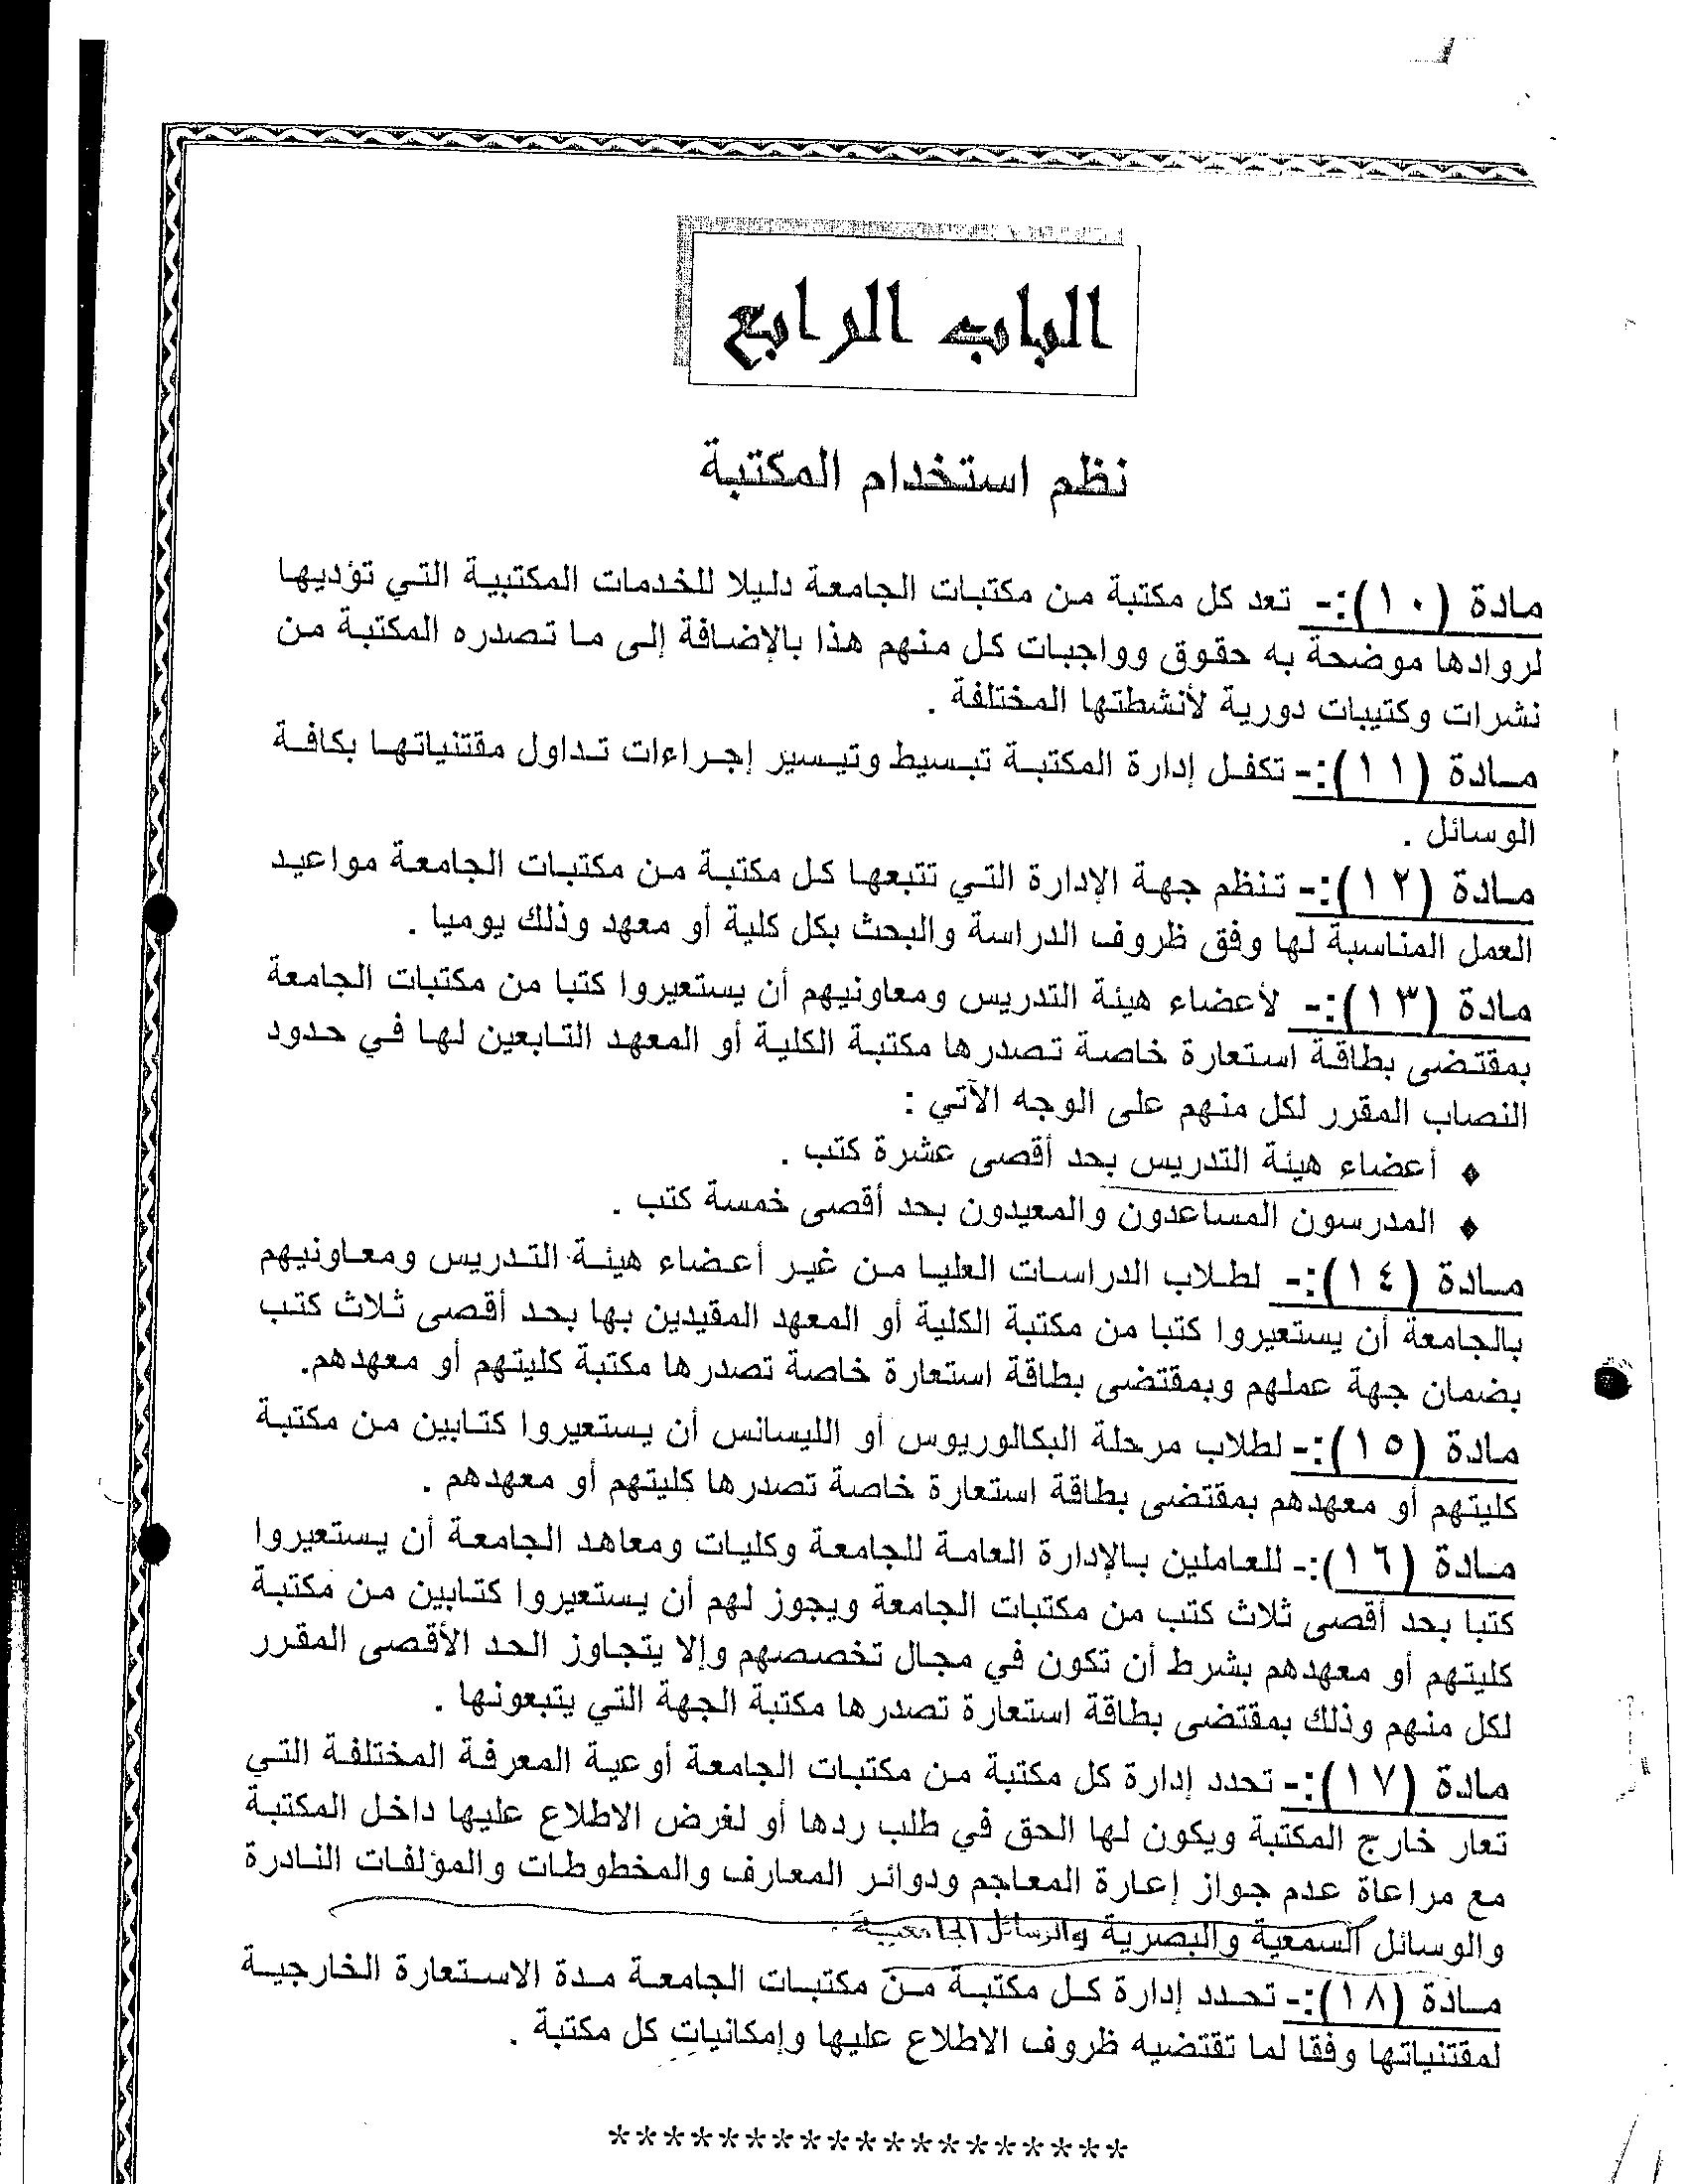 الباب الرابع
نظم استخدام المكتبة
مادة (١٠):- تعد كل مكتبة من مكتبات الجامعة دليلا للخدمات المكتبية التي تؤديها
لروادها موضحة به حقوق وواجبات كل منهم هذا بالإضافة إلى ما تصدره المكتبة من
نشرات وكتيبات دورية لأنشطتها المختلفة .
مادة (١١):- تكفل إدارة المكتبة تبسيط وتيسير إجراءات تداول مقتنياتها بكافة
الوسائل .
مادة (١٢):- تنظم جهة الإدارة التي تتبعها كل مكتبة من مكتبات الجامعة مواعيد
العمل المناسبة لها وفق ظروف الدراسة والبحث بكل كلية أو معهد وذلك يوميا .
مادة (١٣):- لأعضاء هيئة التدريس ومعاونيهم أن يستعيروا كتبا من مكتبات الجامعة
بمقتضى بطاقة استعارة خاصة تصدرها مكتبة الكلية أو المعهد التابعين لها في حدود
النصاب المقرر لكل منهم على الوجه الآتي :
أعضاء هيئة التدريس بحد أقصى عشرة كتب .
المدرسون المساعدون والمعيدون بحد أقصى خمسة كتب .
مادة (١٤):- لطلاب الدراسات العليا من غير أعضاء هيئة التدريس ومعاونيهم
بالجامعة أن يستعيروا كتبا من مكتبة الكلية أو المعهد المقيدين بها بحد أقصى ثلاث كتب
بضمان جهة عملهم وبمقتضى بطاقة استعارة خاصة تصدرها مكتبة كليتهم أو معهدهم.
مادة (١٥):- لطلاب مرحلة البكالوريوس أو الليسانس أن يستعيروا كتابين من مكتبة
كليتهم أو معهدهم بمقتضى بطاقة استعارة خاصة تصدرها كليتهم أو معهدهم .
مادة (١٦):- للعاملين بالإدارة العامة للجامعة وكليات ومعاهد الجامعة أن يستعيروا
كتبا بحد أقصى ثلاث كتب من مكتبات الجامعة ويجوز لهم أن يستعيروا كتابين من مكتبة
كليتهم أو معهدهم بشرط أن تكون في مجال تخصصهم وإلا يتجاوز الحد الأقصى المقرر
لكل منهم وذلك بمقتضى بطاقة استعارة تصدرها مكتبة الجهة التي يتبعونها .
مادة (١٧):- تحدد إدارة كل مكتبة من مكتبات الجامعة أوعية المعرفة المختلفة التي
تعار خارج المكتبة ويكون لها الحق في طلب ردها أو لغرض الاطلاع عليها داخل المكتبة
مع مراعاة عدم جواز إعارة المعاجم ودوائر المعارف والمخطوطات والمؤلفات النادرة
والوسائل السمعية والبصرية والرسائل الجامعية .
مادة (١٨):- تحدد إدارة كل مكتبة من مكتبات الجامعة مدة الاستعارة الخارجية
لمقتنياتها وفقا لما تقتضيه ظروف الاطلاع عليها وإمكانيات كل مكتبة .
*******************